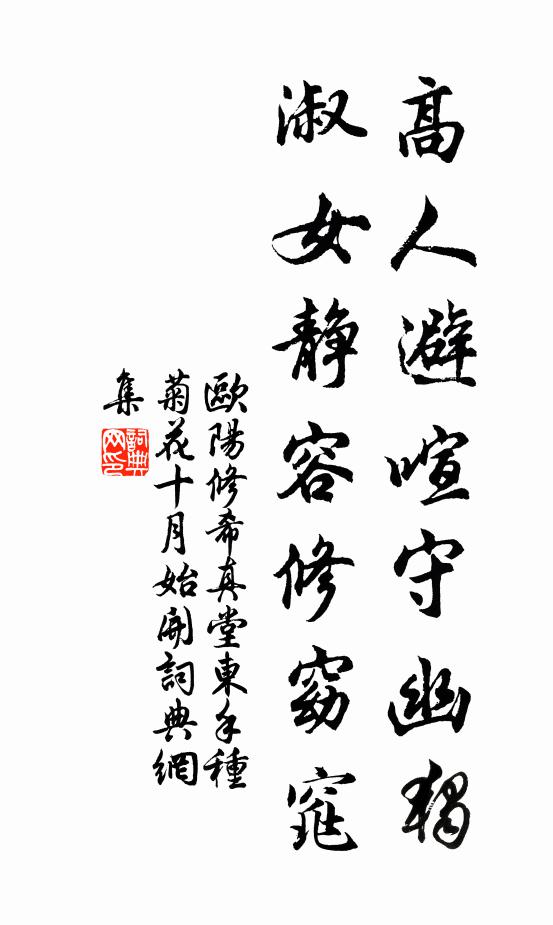 高人避喧守幽獨
淑女静容修窈窕
歐陽修希真堂東手種
菊花十月始開詞典網
集
詞典
网印